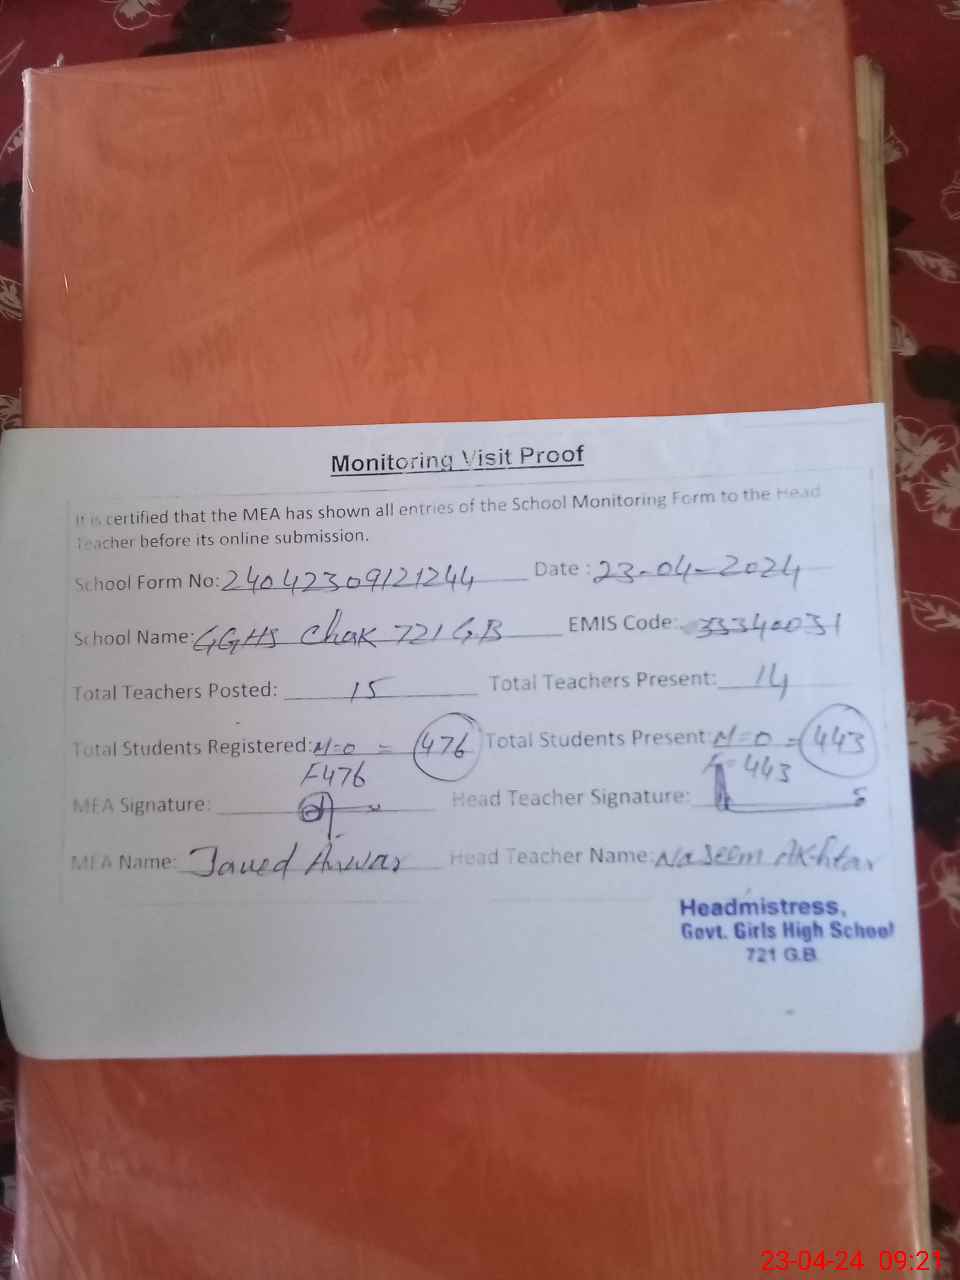 Monitoring Visit Proof
It is certified that the MEA has shown all entries of the School Monitoring Form to the Head
Teacher before its online submission.
School Form No: 24042309121244 Date : 23-04-2024
School Name: GGHS Chak 721 GB EMIS Code: 33340031
Total Teachers Posted: 15 Total Teachers Present: 14
Total Students Registered: M=0 = 476 Total Students Present: M=0 = 443
F476 F=443
MEA Signature: Head Teacher Signature:
MEA Name: Javed Anwar Head Teacher Name: Naseem Akhtar
Headmistress,
Govt. Girls High School
721 G.B.
23-04-24 09:21